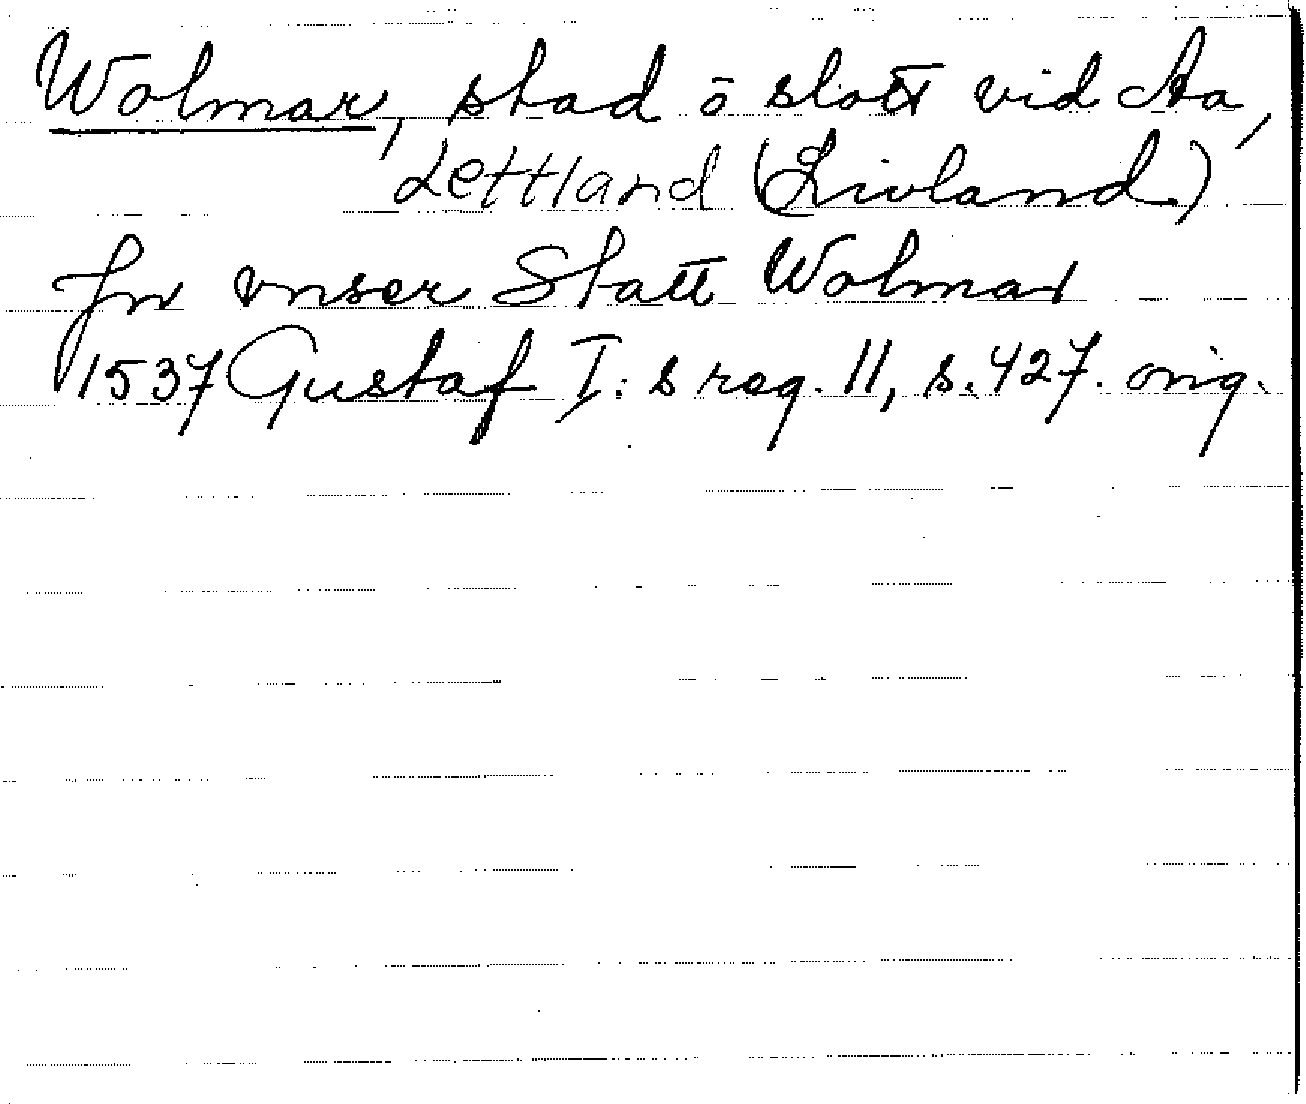 Wolmar, stad o slott vid Aa,
Lettland (Livland)
Jn vnser Statt Wolmar
1537 Gustaf I:s reg. 11, s. 427. orig.